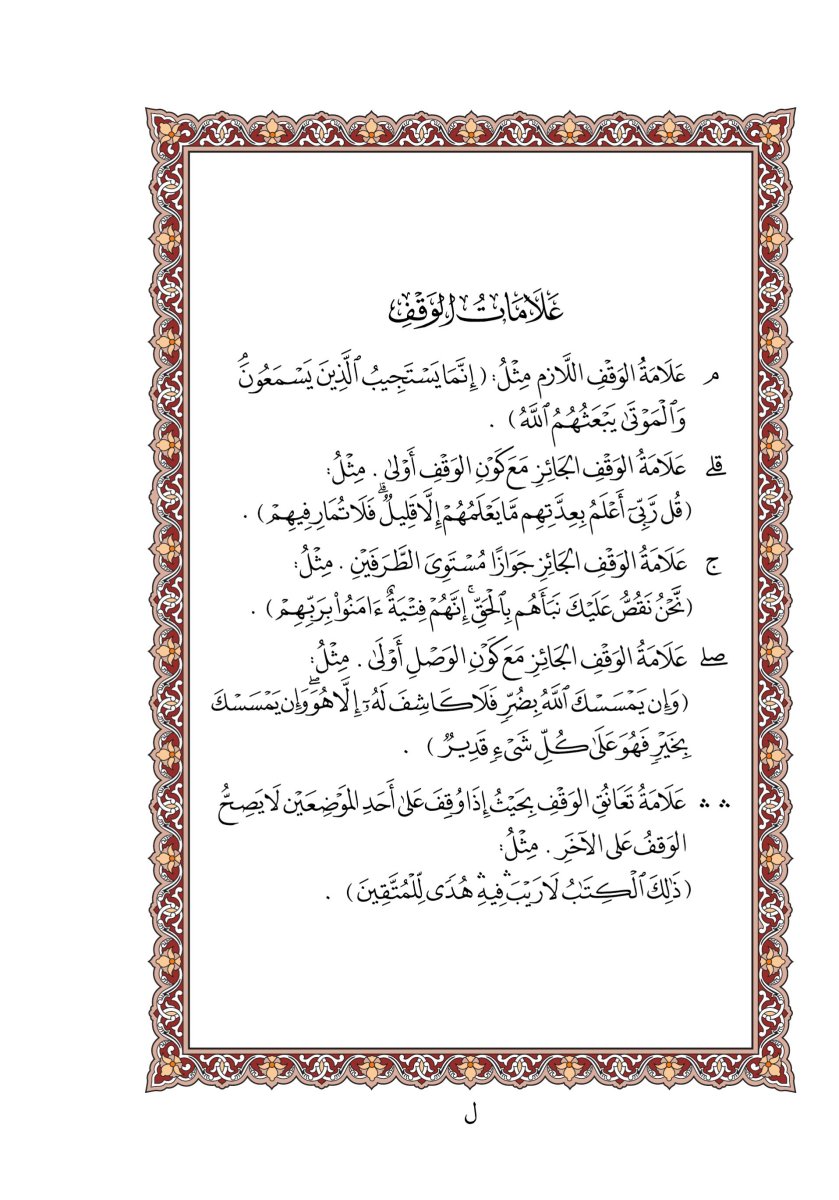 عَلَامَاتُ الوَقْفِ
م عَلَامَةُ الوَقْفِ اللَّازِمِ مِثْلُ: (إِنَّمَا يَسْتَجِيبُ ٱلَّذِينَ يَسْمَعُونَۘ
وَٱلْمَوْتَىٰ يَبْعَثُهُمُ ٱللَّهُ) .
قلے عَلَامَةُ الوَقْفِ الجَائِزِ مَعَ كَوْنِ الوَقْفِ أَوْلَىٰ . مِثْلُ:
(قُل رَّبِّيٓ أَعْلَمُ بِعِدَّتِهِم مَّا يَعْلَمُهُمْ إِلَّا قَلِيلٌۗ فَلَا تُمَارِ فِيهِمْ) .
ج عَلَامَةُ الوَقْفِ الجَائِزِ جَوَازًا مُسْتَوِيَ الطَّرَفَيْنِ . مِثْلُ:
(نَّحْنُ نَقُصُّ عَلَيْكَ نَبَأَهُم بِٱلْحَقِّۚ إِنَّهُمْ فِتْيَةٌ ءَامَنُوا۟ بِرَبِّهِمْ) .
صلے عَلَامَةُ الوَقْفِ الجَائِزِ مَعَ كَوْنِ الوَصْلِ أَوْلَىٰ . مِثْلُ:
(وَإِن يَمْسَسْكَ ٱللَّهُ بِضُرٍّ فَلَا كَاشِفَ لَهُۥٓ إِلَّا هُوَۖ وَإِن يَمْسَسْكَ
بِخَيْرٍ فَهُوَ عَلَىٰ كُلِّ شَىْءٍ قَدِيرٌ) .
ۛ ۛ عَلَامَةُ تَعَانُقِ الوَقْفِ بِحَيْثُ إِذَا وُقِفَ عَلَىٰ أَحَدِ المَوْضِعَيْنِ لَا يَصِحُّ
الوَقْفُ عَلَى الآخَرِ . مِثْلُ:
(ذَٰلِكَ ٱلْكِتَٰبُ لَا رَيْبَۛ فِيهِۛ هُدًى لِّلْمُتَّقِينَ) .
ل